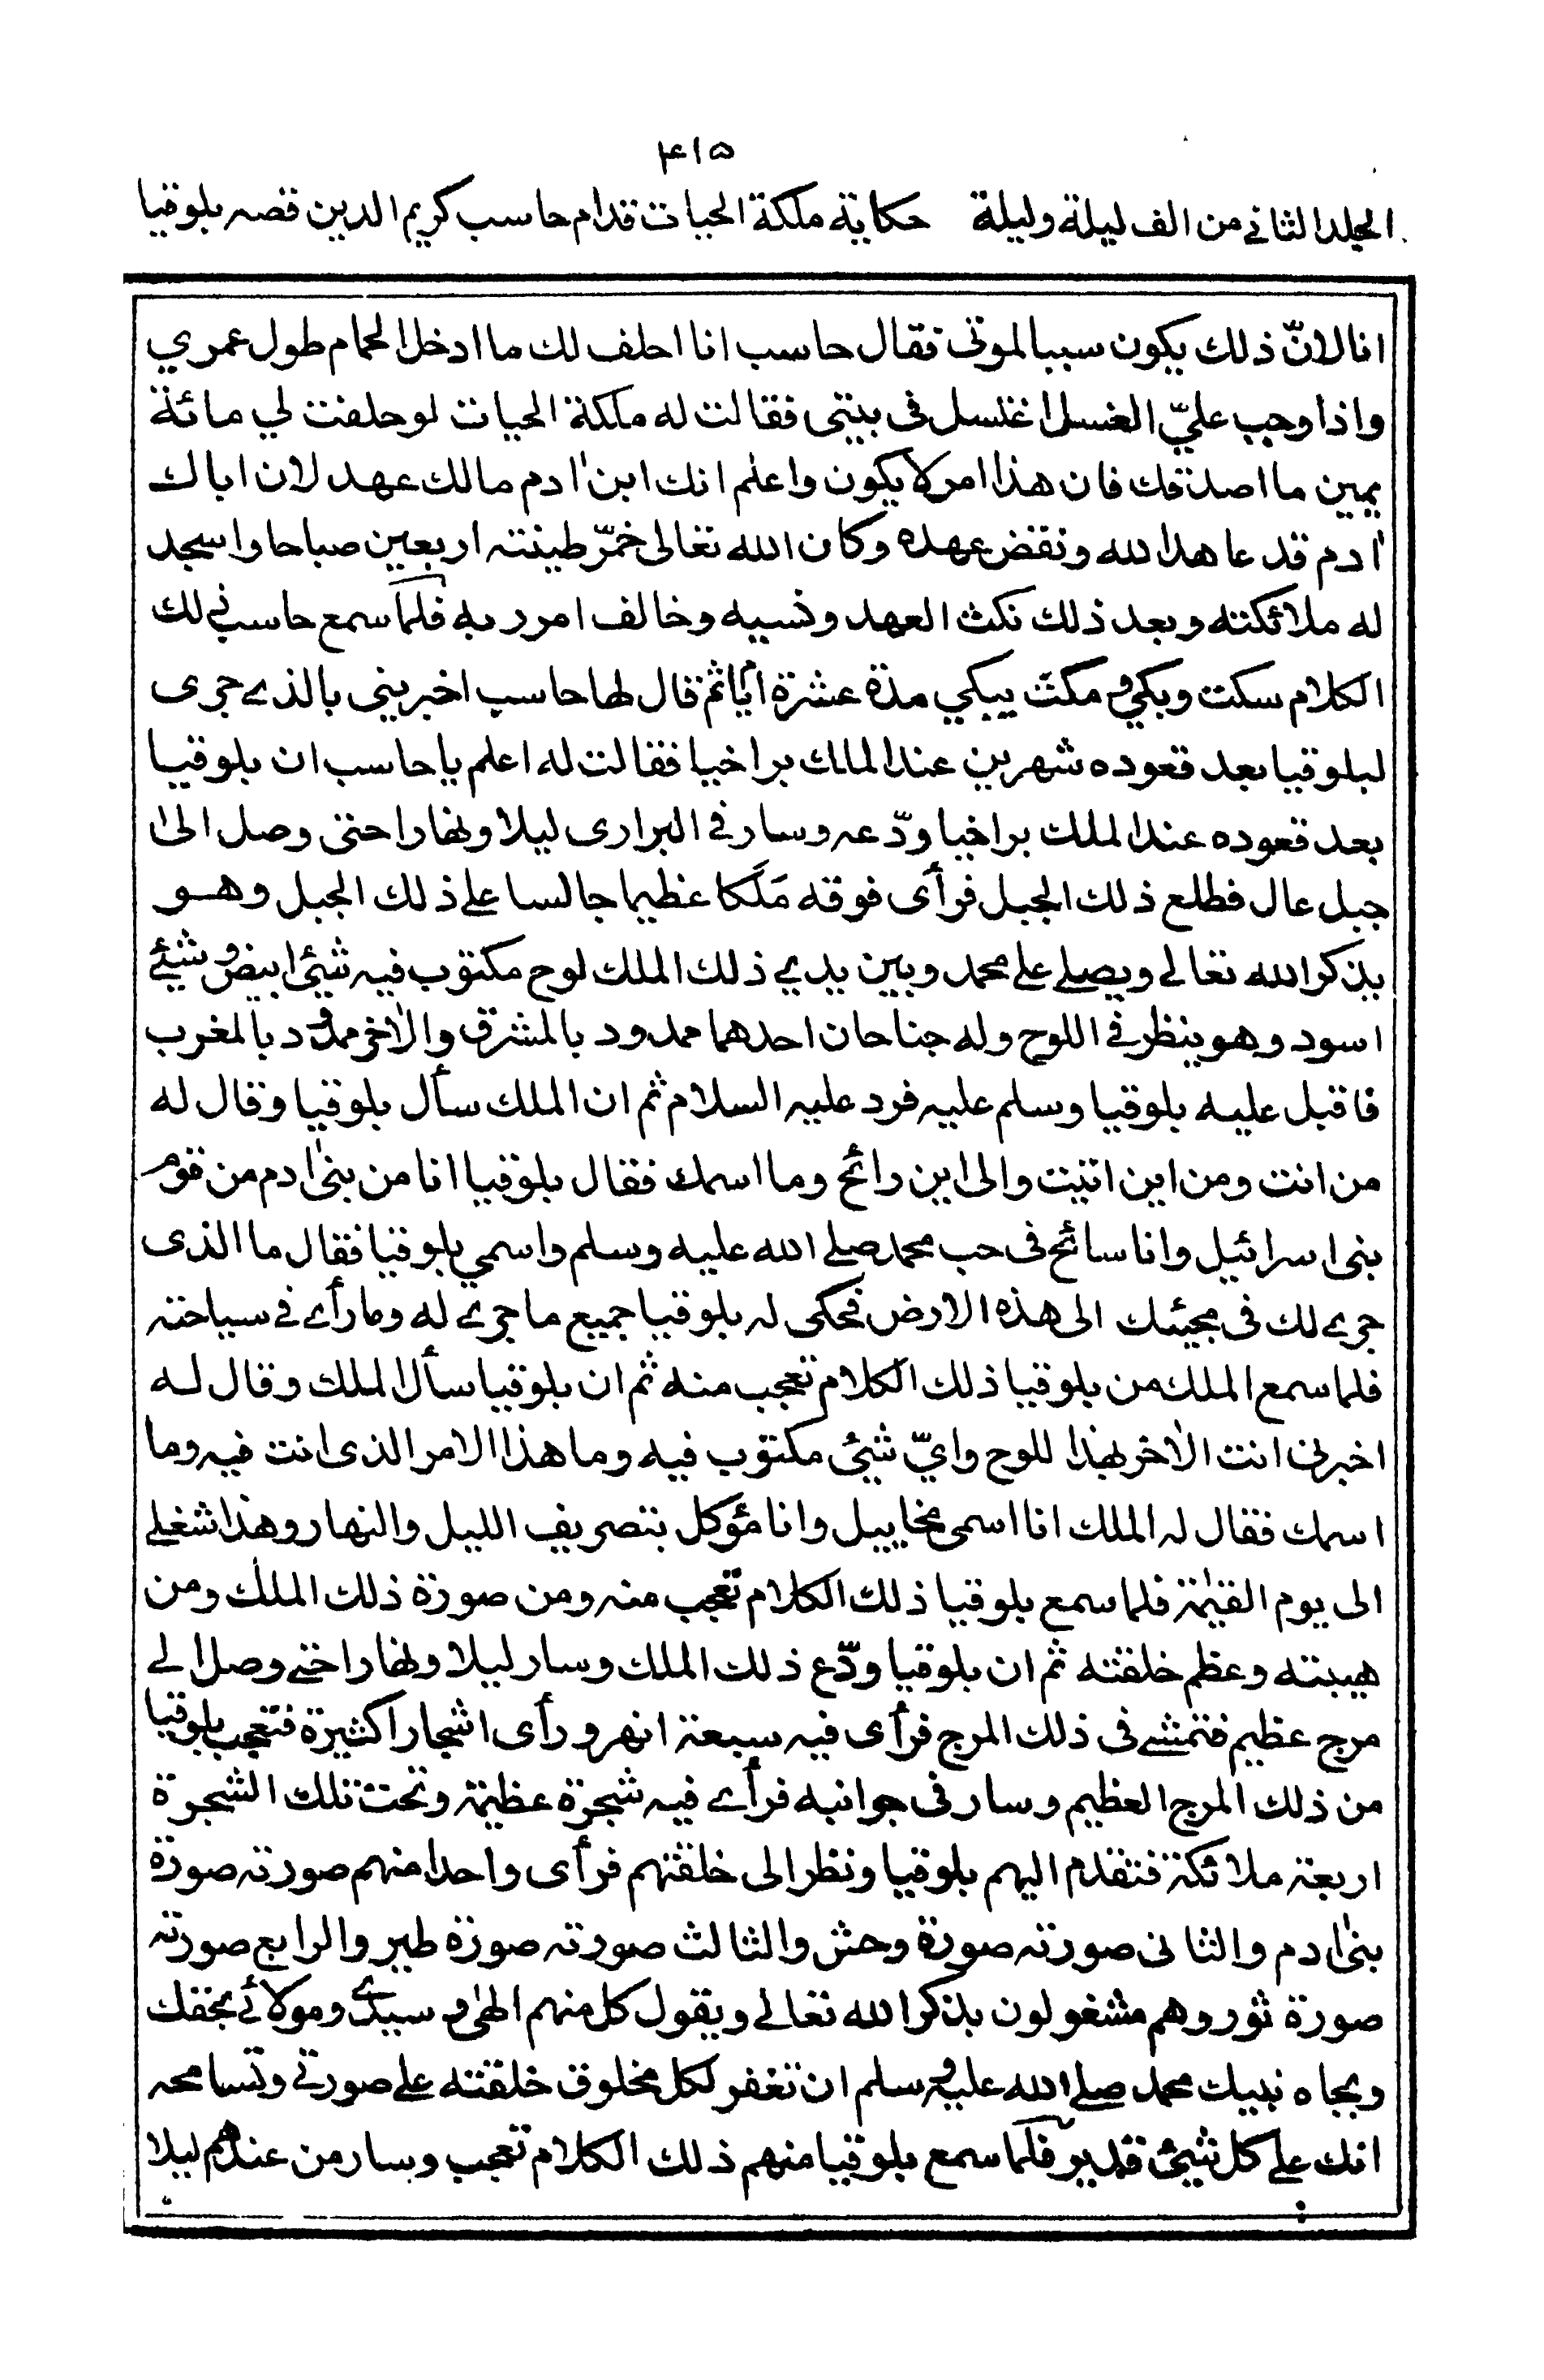 ۴۱۵
الجلد الثانے من الف ليلة وليلة حكاية ملكة الحيات قدام حاسب كريم الدين قصہ بلوقيا
انا لانّ ذلك يكون سببا لموتى فقال حاسب انا احلف لك ما ادخل الحمام طول عمري
واذا وجب عليّ الغسل اغتسل فى بيتى فقالت له ملكة الحيات لو حلفت لي مائة
يمين ما اصدقك فان هذا امر لا يكون واعلم انك ابن اٰدم مالك عهد لان اباك
اٰدم قد عاهد الله ونقض عهده وكان الله تعالى خمّر طينتہ اربعين صباحا واسجد
له ملائكته وبعد ذلك نكث العهد ونسيه وخالف امر ربه فلما سمع حاسب ذلك
الكلام سكت وبكى ومكث يبكي مدة عشرة ايام ثم قال لها حاسب اخبرينى بالذے جرى
لبلوقيا بعد قعوده شهرين عند الملك براخيا فقالت له اعلم يا حاسب ان بلوقيا
بعد قعوده عند الملك براخيا ودّعہ وسار فے البرارى ليلا ونهارا حتى وصل الىٰ
جبل عال فطلع ذلك الجبل فرأى فوقه مَلَكا عظيما جالسا علے ذلك الجبل وهو
يذكر الله تعالے ويصلے علے محمد وبين يدي ذلك الملك لوح مكتوب فيہ شيئ ابيض وشيئے
اسود وهو ينظر فے اللوح وله جناحان احدهما ممدود بالمشرق والاٰخر ممدود بالمغرب
فاقبل عليه بلوقيا وسلم عليہ فرد عليہ السلام ثم ان الملك سأل بلوقيا وقال له
من انت ومن اين اتيت والى اين رائح وما اسمك فقال بلوقيا انا من بنى اٰدم من قوم
بنى اسرائيل وانا سائح فى حب محمد صلے الله عليه وسلم واسمي بلوقيا فقال ما الذى
جرے لك فى مجيئك الى هذه الارض فحكى لہ بلوقيا جميع ما جرے له وما رأے فے سياحتہ
فلما سمع الملك من بلوقيا ذلك الكلام تعجب منه ثم ان بلوقيا سأل الملك وقال له
اخبرنى انت الاٰخر بهذا اللوح وايّ شيئ مكتوب فيه وما هذا الامر الذى انت فيہ وما
اسمك فقال لہ الملك انا اسمى مخاييل وانا مؤكل بتصريف الليل والنهار وهذا شغلے
الى يوم القيٰمة فلما سمع بلوقيا ذلك الكلام تعجب منہ ومن صورة ذلك الملك ومن
هيبته وعظم خلقته ثم ان بلوقيا ودّع ذلك الملك وسار ليلا ونهارا حتے وصل الے
مرج عظيم فتمشے فى ذلك المرج فرأى فيہ سبعة انهر ورأى اشجارا كثيرة فتعجب بلوقيا
من ذلك المرج العظيم وسار فى جوانبه فرأے فيہ شجرة عظيمة وتحت تلك الشجرة
اربعة ملائكة فتقدم اليهم بلوقيا ونظر الى خلقتهم فرأى واحدا منهم صورتہ صورة
بنى اٰدم والثانى صورتہ صورة وحش والثالث صورتہ صورة طير والرابع صورتہ
صورة ثور وهم مشغولون بذكر الله تعالے ويقول كل منهم الهى وسيدے ومولائے بحقك
وبجاه نبيك محمد صلے الله عليه وسلم ان تغفر لكل مخلوق خلقته علے صورتے وتسامحہ
انك علے كل شيئ قدير فلما سمع بلوقيا منهم ذلك الكلام تعجب وسار من عندهم ليلا